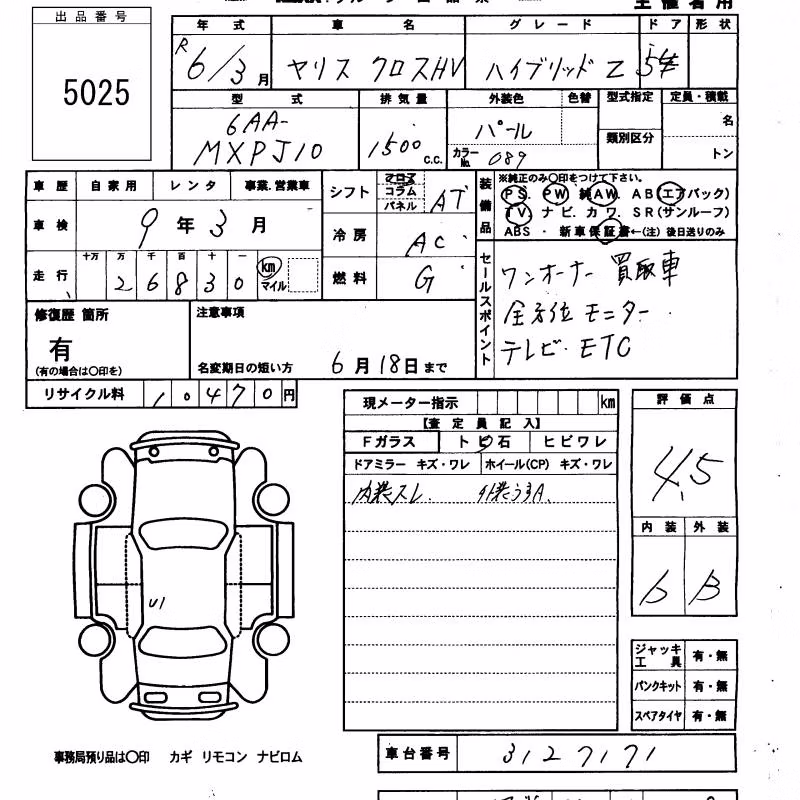 出品番号
5025
年式 車名 グレード ドア 形状
R6/3月 ヤリス クロスHV ハイブリッド Z 5
型式 排気量 外装色 色替 型式指定 定員・積載
6AA-
MXPJ10 1500 c.c. パール 名
カラーNo. 089 類別区分 トン
車歴 自家用 レンタ 事業.営業車
車検 9年3月
走行 十万 万 千 百 十 一
26830 km マイル
シフト コラム パネル AT
冷房 AC
燃料 G
装備品
※純正のみ〇印をつけて下さい。
PS. PW 純AW. AB(エアバック)
TV. ナビ. カワ. SR(サンルーフ)
ABS ・ 新車保証書←(注) 後日送りのみ
セールスポイント
ワンオーナー 買取車
全方位モニター
テレビ・ETC
修復歴 箇所
有
(有の場合は〇印を)
注意事項
名変期日の短い方 6月18日まで
リサイクル料 10470円
現メーター指示 km
【査定員記入】
Fガラス トビ石 ヒビワレ
ドアミラー キズ・ワレ ホイール(CP) キズ・ワレ
内装スレ. 外装うすA.
評価点
4.5
内装 外装
b B
U1
ジャッキ工具 有・無
パンクキット 有・無
スペアタイヤ 有・無
事務局預り品は〇印 カギ リモコン ナビロム
車台番号 3127171